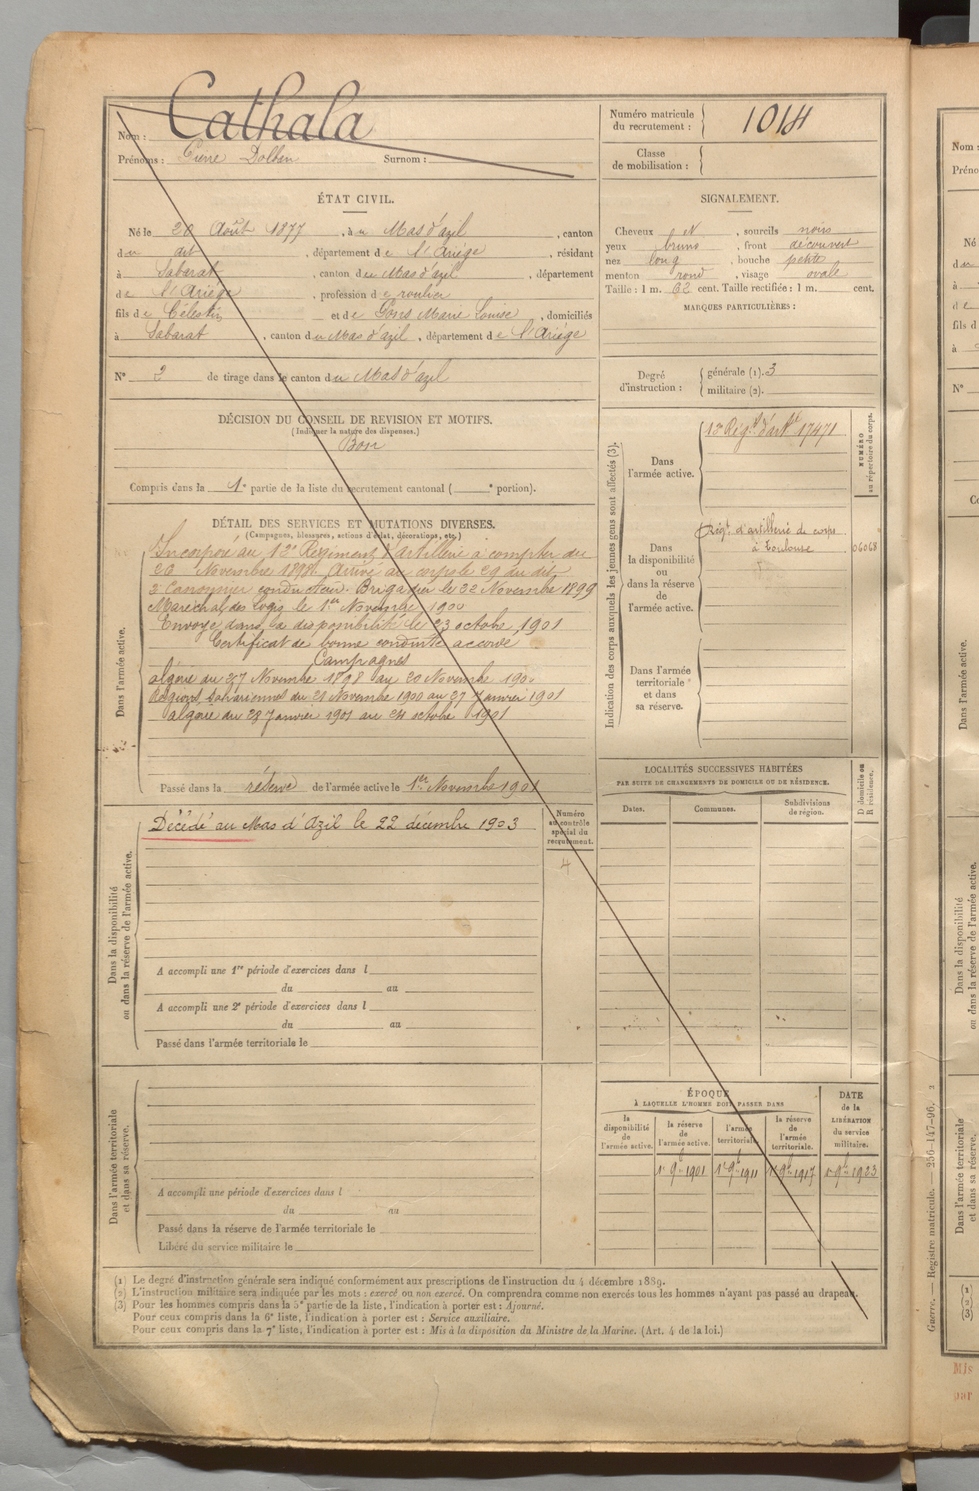 Nom : Cathala
Prénoms : Pierre Dolbin Surnom :
Numéro matricule du recrutement : 1014
Classe de mobilisation :
ÉTAT CIVIL.
Né le 20 Août 1877, à u Mas d'azil, canton
du dit, département de l'Ariége, résidant
à Sabarat, canton du Mas d'azil, département
de l'Ariége, profession de roulier
fils de Célestin et de Pons Marie Louise, domiciliés
à Sabarat, canton du Mas d'azil, département de l'Ariége
N° 2 de tirage dans le canton du Mas d'azil
SIGNALEMENT.
Cheveux et, sourcils noirs
yeux bruns, front découvert
nez long, bouche petite
menton rond, visage ovale
Taille : 1 m. 62 cent. Taille rectifiée : 1 m. cent.
MARQUES PARTICULIÈRES :
Degré d'instruction : générale (1). 3
militaire (2).
DÉCISION DU CONSEIL DE REVISION ET MOTIFS.
(Indiquer la nature des dispenses.)
Bon
Compris dans la 1e partie de la liste du recrutement cantonal ( e portion).
DÉTAIL DES SERVICES ET MUTATIONS DIVERSES.
(Campagnes, blessures, actions d'éclat, décorations, etc.)
Dans l'armée active.
Incorporé au 12e Régiment d'artillerie à compter du
20 Novembre 1898. Arrivé au corps le 29 du dit
2e Canonnier conducteur. Brigadier le 22 Novembre 1899
Maréchal des Logis le 1er Novembre 1900
Envoyé dans la disponibilité le 23 octobre 1901
Certificat de bonne conduite accordé
Campagnes
Algérie du 27 Novembre 1898 au 20 Novembre 1900
Régions Sahariennes du 21 Novembre 1900 au 27 Janvier 1901
Algérie du 28 Janvier 1901 au 24 octobre 1901
Passé dans la réserve de l'armée active le 1er Novembre 1901
Indication des corps auxquels les jeunes gens sont affectés (3).
Dans l'armée active.
12e Régt d'artie 17471
NUMÉRO au répertoire du corps.
Dans la disponibilité ou dans la réserve de l'armée active.
Régt. d'artillerie de corps
à Toulouse
06068
Dans l'armée territoriale et dans sa réserve.
Dans la disponibilité ou dans la réserve de l'armée active.
Décédé au Mas d'Azil le 22 décembre 1903
Numéro au contrôle spécial du recrutement.
4
A accompli une 1re période d'exercices dans l
du au
A accompli une 2e période d'exercices dans l
du au
Passé dans l'armée territoriale le
LOCALITÉS SUCCESSIVES HABITÉES
PAR SUITE DE CHANGEMENTS DE DOMICILE OU DE RÉSIDENCE.
Dates. Communes. Subdivisions de région.
D domicile ou R résidence.
Dans l'armée territoriale et dans sa réserve.
A accompli une période d'exercices dans l
du au
Passé dans la réserve de l'armée territoriale le
Libéré du service militaire le
ÉPOQUE
À LAQUELLE L'HOMME DOIT PASSER DANS
la disponibilité de l'armée active.
la réserve de l'armée active.
l'armée territoriale.
la réserve de l'armée territoriale.
DATE de la LIBÉRATION du service militaire.
1er 9bre 1901 1er 9bre 1911 1er 9bre 1917 1er 9bre 1923
(1) Le degré d'instruction générale sera indiqué conformément aux prescriptions de l'instruction du 4 décembre 1889.
(2) L'instruction militaire sera indiquée par les mots : exercé ou non exercé. On comprendra comme non exercés tous les hommes n'ayant pas passé au drapeau.
(3) Pour les hommes compris dans la 5e partie de la liste, l'indication à porter est : Ajourné.
Pour ceux compris dans la 6e liste, l'indication à porter est : Service auxiliaire.
Pour ceux compris dans la 7e liste, l'indication à porter est : Mis à la disposition du Ministre de la Marine. (Art. 4 de la loi.)
Guerre. — Registre matricule. — 256-147-96. 2